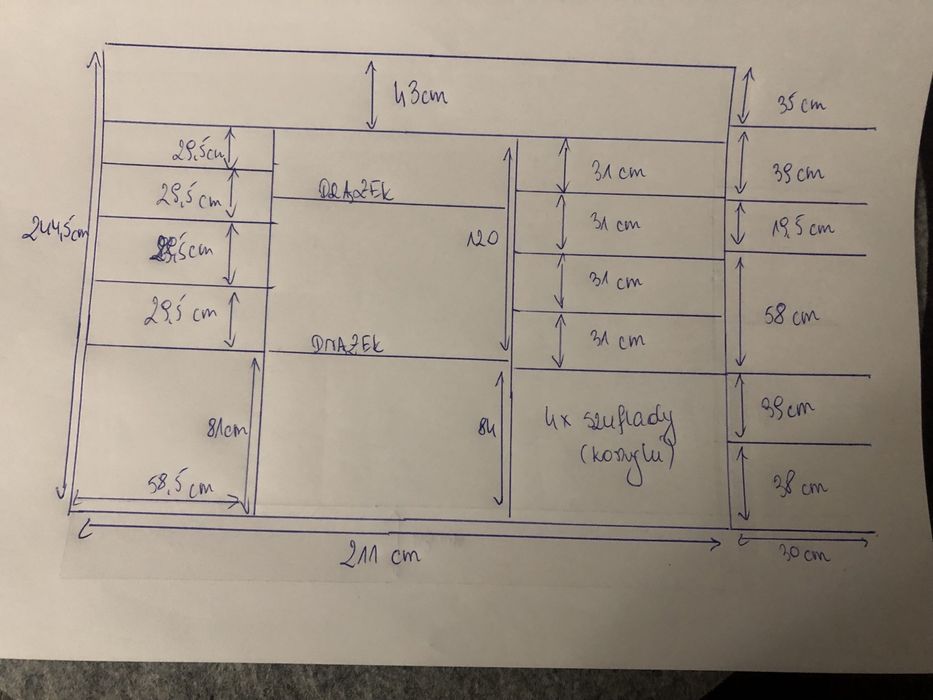 43cm
35 cm
29,5cm
31 cm
39 cm
DRĄŻEK
29,5cm
244,5cm
120
31 cm
19,5cm
31 cm
29,5 cm
58 cm
31 cm
DRĄŻEK
81cm
84
4x szuflady
(koszyki)
39cm
58,5 cm
38 cm
211 cm
30cm